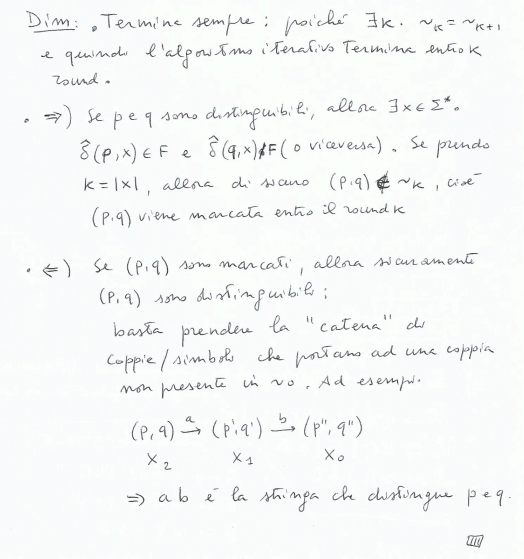 Dim: . Termina sempre: poiché ∃k. ~k = ~k+1
e quindi l'algoritmo iterativo termina entro k
round.
. ⇒) Se p e q sono distinguibili, allora ∃x ∈ Σ*.
δ̂(p,x) ∈ F e δ̂(q,x) ∉ F (o viceversa). Se prendo
k = |x|, allora di sicuro (p,q) ∉ ~k, cioè
(p,q) viene marcata entro il round k
. ⇐) Se (p,q) sono marcati, allora sicuramente
(p,q) sono distinguibili:
basta prendere la "catena" di
coppie/simboli che portano ad una coppia
non presente in ~0. Ad esempi.
(p,q) a→ (p',q') b→ (p'',q'')
X2 X1 X0
⇒ ab è la stringa che distingue p e q.